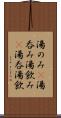 湯のみ 湯
呑み湯飲み
湯呑湯飲